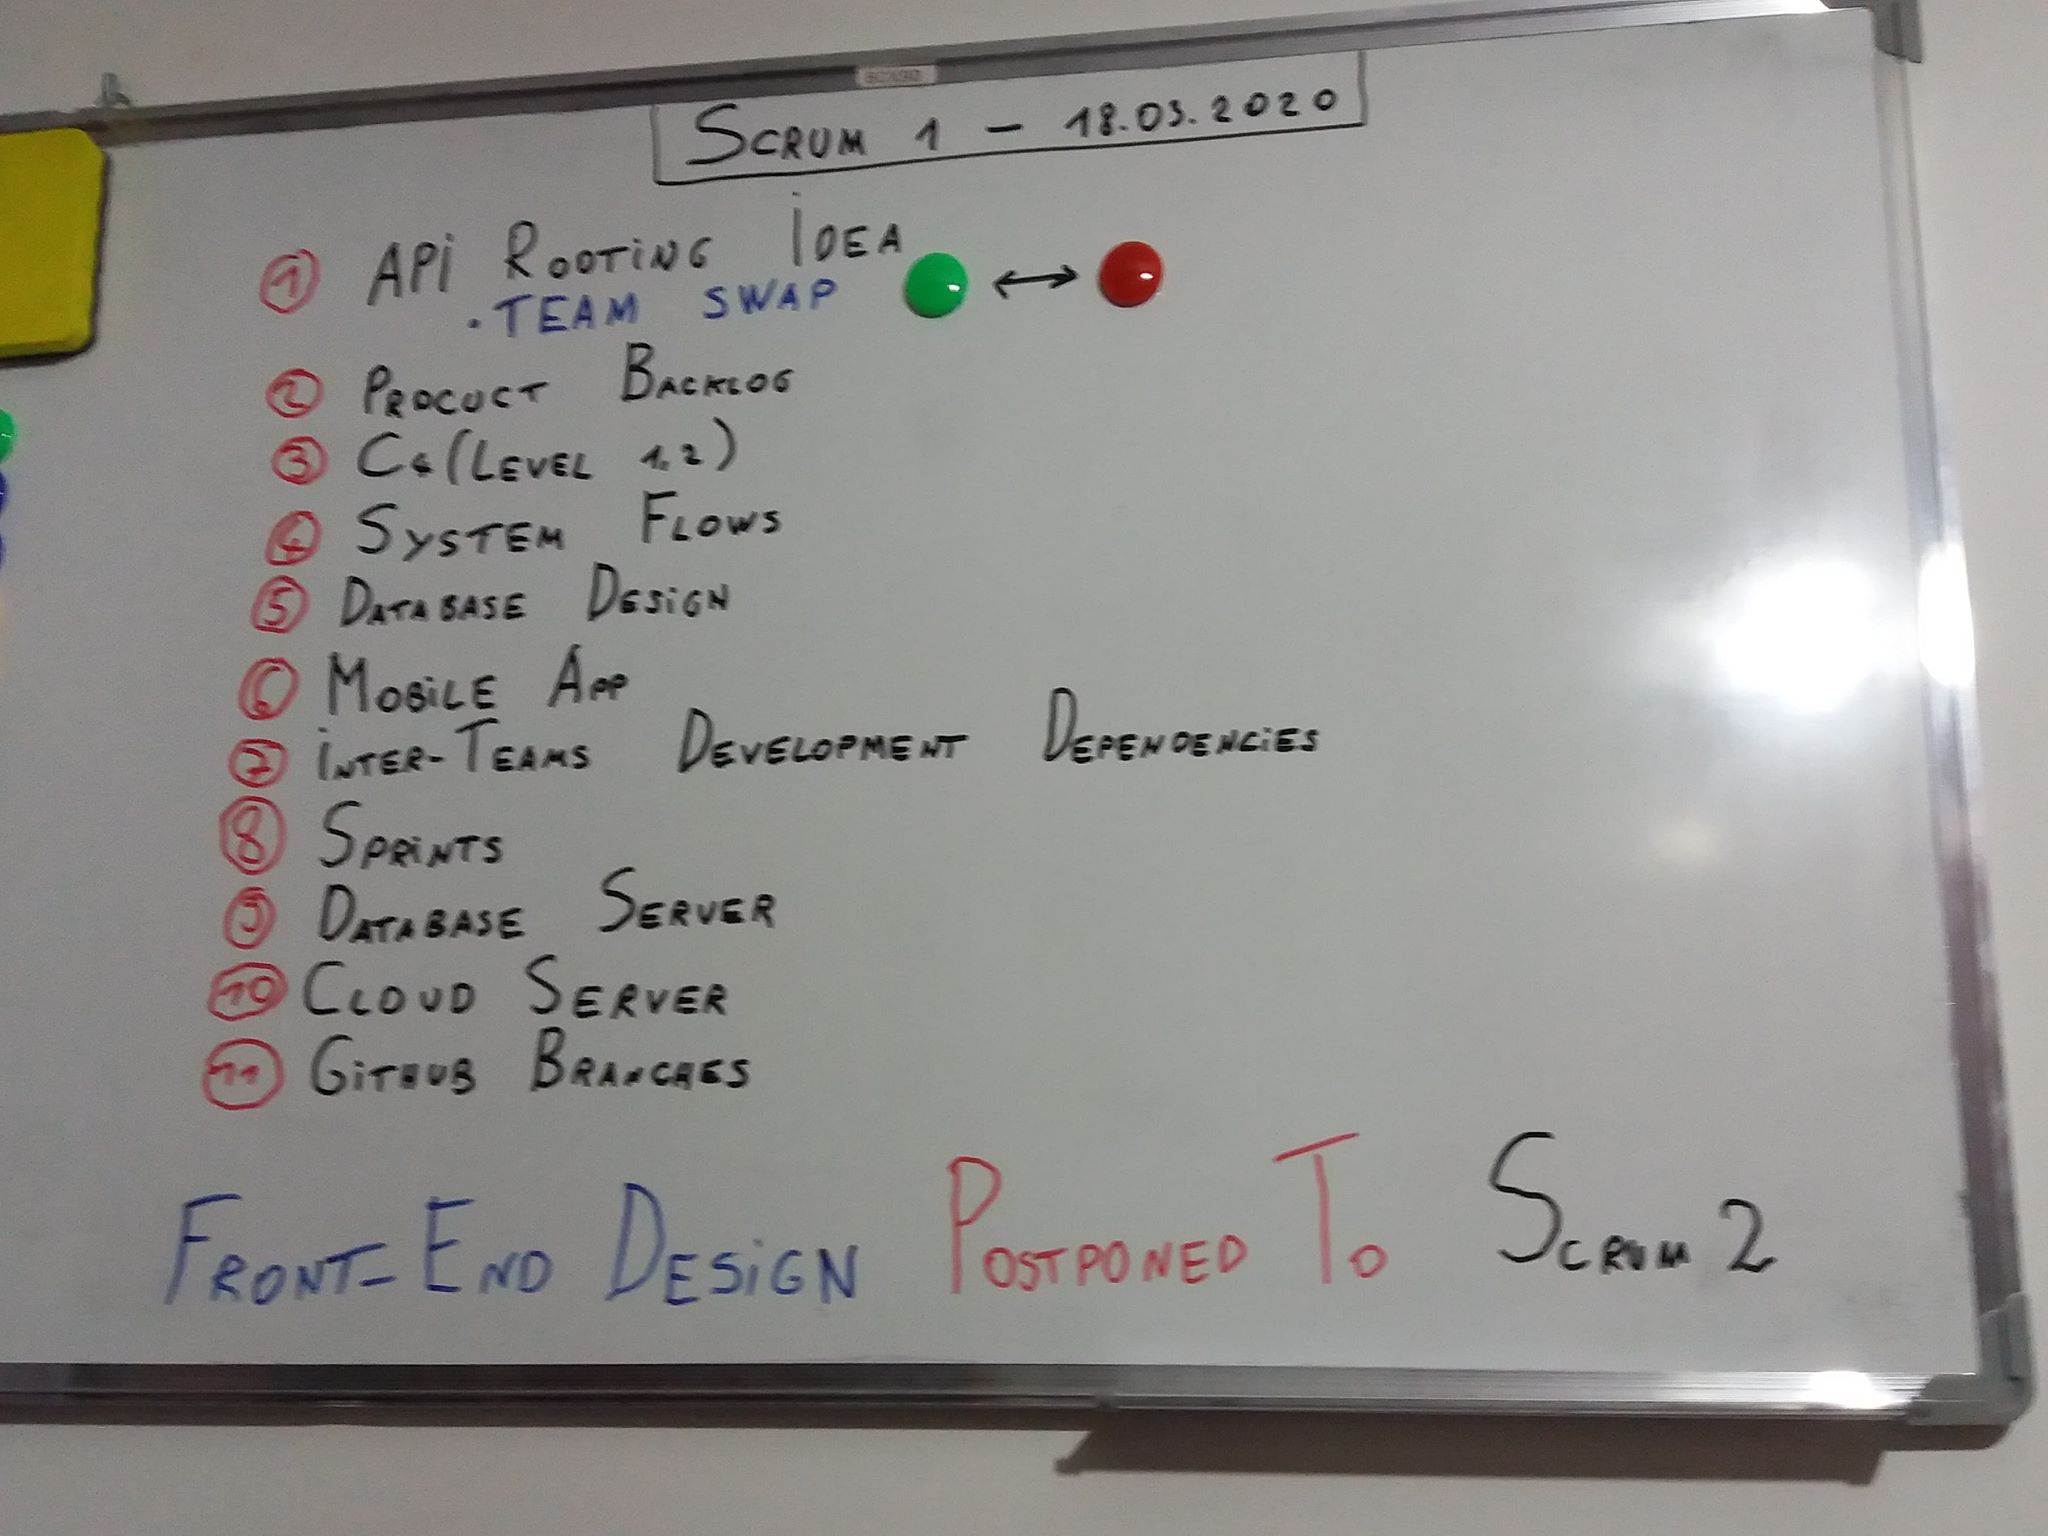 SCRUM 1 - 18.03.2020
1 API ROOTING IDEA
. TEAM SWAP ↔
2 PROCUCT BACKLOG
3 C4 (LEVEL 1,2)
4 SYSTEM FLOWS
5 DATABASE DESIGN
6 MOBILE APP
7 INTER-TEAMS DEVELOPMENT DEPENDENCIES
8 SPRINTS
9 DATABASE SERVER
10 CLOUD SERVER
11 GITHUB BRANCHES
FRONT-END DESIGN POSTPONED TO SCRUM 2